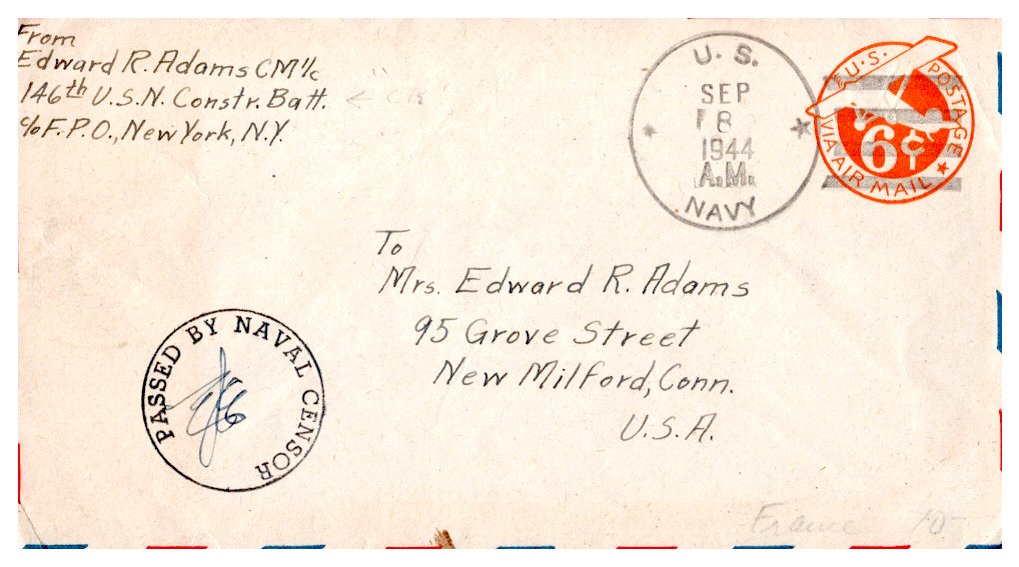 From
Edward R. Adams CM1/c
146th U.S.N. Constr. Batt.
c/o F.P.O., New York, N.Y.
U. S.
SEP
8
1944
A.M.
NAVY
U.S. POSTAGE
6¢
VIA AIR MAIL
To
Mrs. Edward R. Adams
95 Grove Street
New Milford, Conn.
U.S.A.
PASSED BY NAVAL CENSOR
France 10-